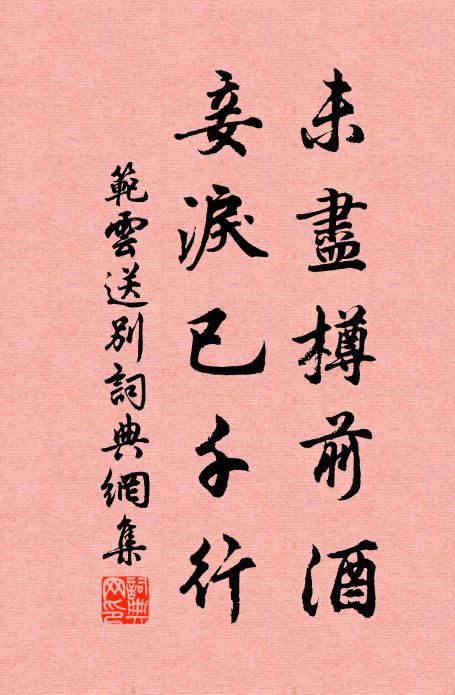 未盡樽前酒
妾淚已千行
範雲送別詞典網集
詞典网印